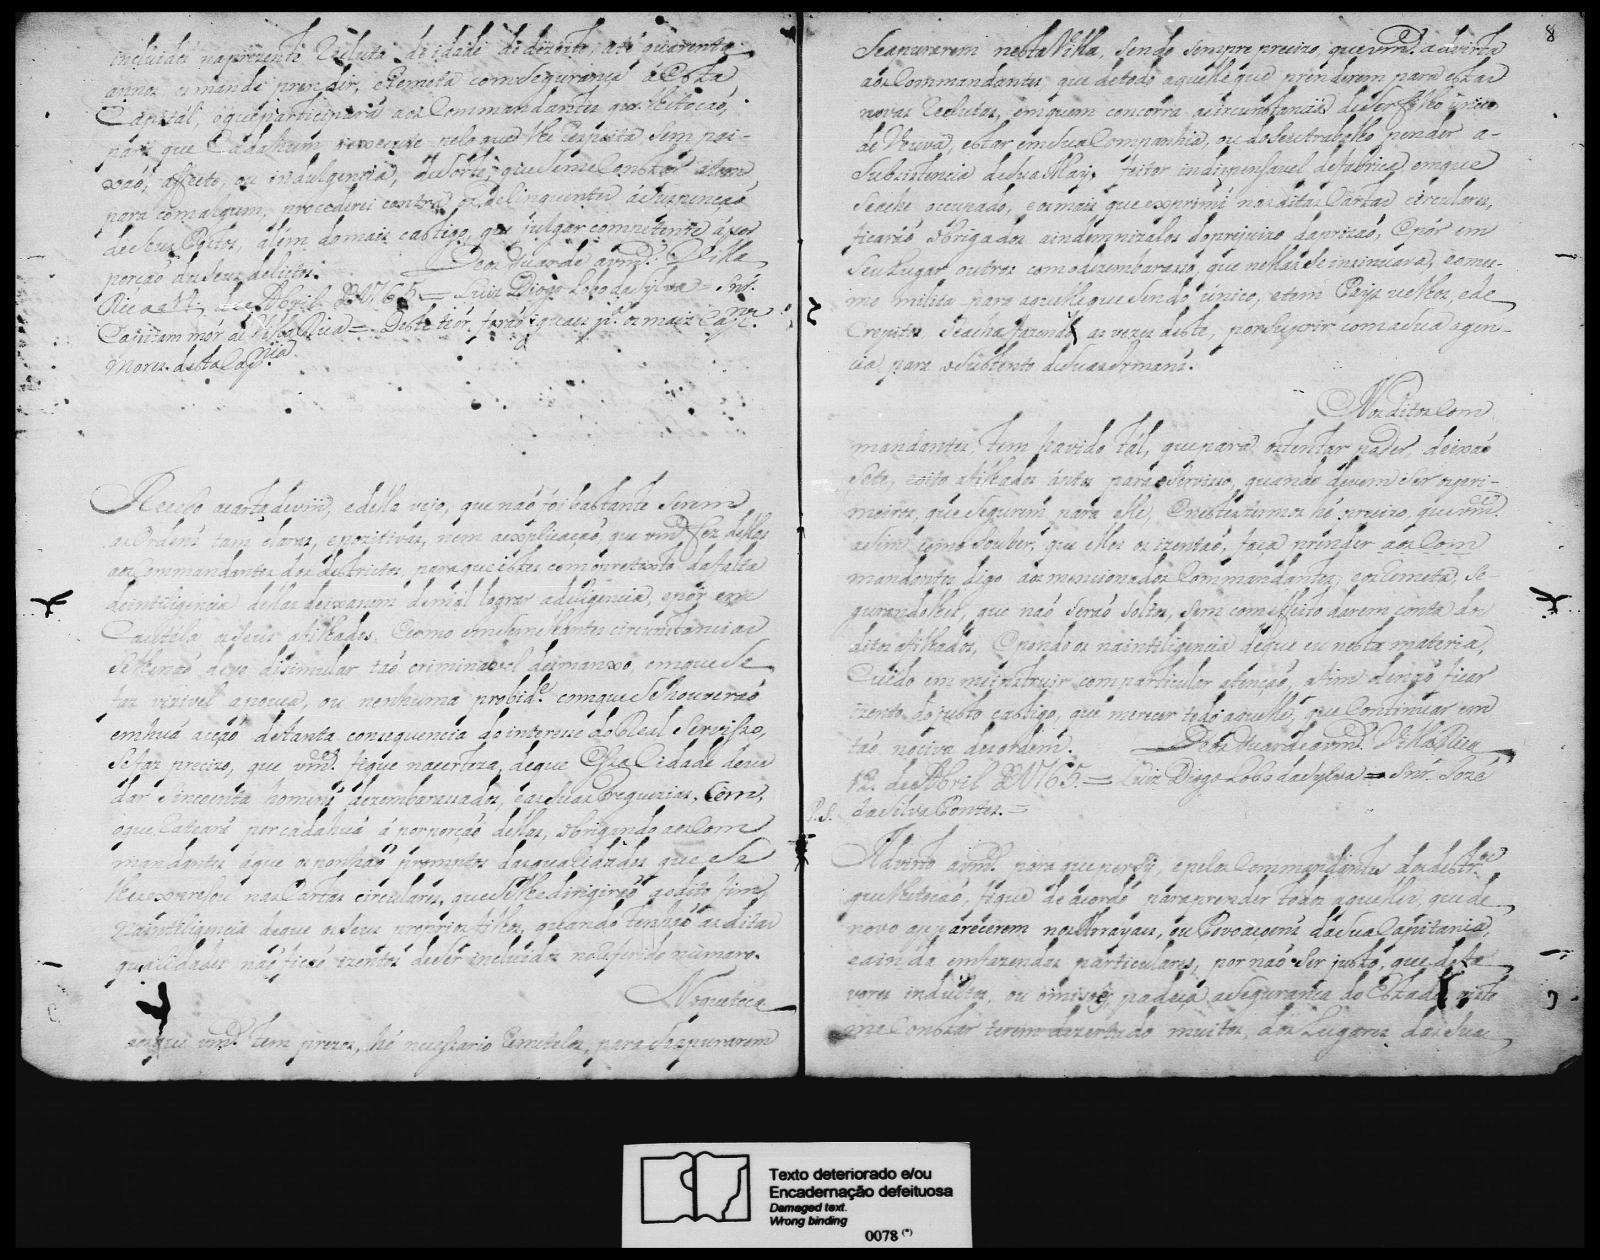 incluidos naprezente Recluta de idade de dezoito, até quarenta
annos os mande prender, e remeta com segurança à esta
Capital, oque participará aos Commandantes que lhe tocaõ,
para que Cadahum execute pelo que lhe respeita sem pai-
xaõ, affecto, ou indulgencia, de sorte, que seme Constar atem
para com algum, procederei contra os delinquentes á suspençaõ
de seus Póstos, além do mais castigo, que julgar competente á pro
porçaõ de seus delictos. Deos Guarde a vm.ce Villa
Rica a 12 de Abril D 1765 = Luiz Diogo Lobo da Sylva = Snr.
Capitam mór de Villa Rica = Deste teór, foraõ iguaes p.a os mais Cap.es
Mores desta Cap.nia
Recebo acarta devm.ce, e della vejo, que naõ foi bastante serem
as Ordens tam claras, e pozitivas, nem aexplicaçaõ, que vm.ce fez dellas
aos Commandantes dos destrictos, para que estes com opretexto dafalta
deinteligencia dellas deixassem demal lograr adeligencia, epôr em
Cautéla os seus afilhados, Ecomo em semelhantes circunstancias
selhenaõ deve disimular taõ criminavel deimanxo, emque se
faz vizivel apouca, ou nenhuma probid.e comque sehouveraõ
emhuã acçaõ detanta consequencia do interesse do Real Serviço,
sefaz precizo, que vm.ce fique nacerteza, deque Essa Cidade devia
dar sincoenta homens dezembarassados, easSuas Freguezias, Cem,
oque, Cateará porcadahuã á porporçaõ dellas, obrigando aos Com
mandantes áque os ponhaõ promptos dasqualidades que se
lhe expressou nas Cartas circulares, que selhe dirigiraõ aodito fim,
Nainteligencia deque os seus proprios filhos, quando tenhaõ as ditas
qualidades naõ ficaõ izentos deser incluidos noreferido numaro.
Noquetoca
aosque vm.ce tem prezos, hé necessario remetelos, para Seapurarem
8
Seapurarem nesta Villa, sendo sempre precizo, que vm.ce advirta
aos Commandantes, que detodo aquelle que prenderem para estas
novas Reclutas, em quem concorra acircunstancia deser filho único
de Viuva, estar em sua Companhia, ou do seu trabalho pender a-
Subsistencia de sua May, feitor indispensavel defabrica, emque
Seache occupado, eosmais que exprimi nas ditas Cartas circulares,
ficaraõ obrigados aindemnizalos doprejuizo daprizaõ, Epôr em
seu Lugar outros comodezembarasso, que nellas se insinuava, eomes-
mo milita para aquelle que sendo único, etem Pays velhos, ede
Crepitos, seacha fazendo as vezes deste, porsuprir com a sua agen-
cia para oSustento desuas Irmans.
Nos ditos Com
mandantes, tem havido tál, que para ostentar poder, deixaõ
sete, eoito afilhados aptos para o Serviço, quando devem ser ospri-
meiros, que segurem para elle, Enestes termos hé precizo, que vm.ce
asim como souber, que elles os izentaõ, faça prender aos Com
mandantes digo aos mencionados Commandantes, eos remeta, se-
gurandolhes, que naõ seraõ soltos, sem comeffeito darem conta dos
ditos afilhados, Epondo os nainteligencia deque eu nesta materia,
Cuido em meinstruir comparticular atençaõ, afim denaõ ficar
izento dojusto castigo, que merecer todo aquelle, que Continuar em
taõ nociva desordem. Deos Guarde avm.ce Villa Rica
12 de Abril D 1765 = Luiz Diogo Lobo da Sylva = Snr. Jozé
da Silva Pontes. =
P.S.
Advirto avm.ce para que persy, epelos Commandantes dos destr.os
quelhetocaõ, fique de acordo paraprender todos aquelles, que de
novo apparecerem nos Arrayaes, ou Povoaçoens dasua Capitania,
eainda emfazendas particulares, por naõ ser justo, que desta
vores indultos, ou omisoẽs padeça asegurança do Estado, visto
me Constar terem dezertado muitos, dos Lugares das Suas
Texto deteriorado e/ou
Encadernação defeituosa
Damaged text.
Wrong binding
0078 (*)